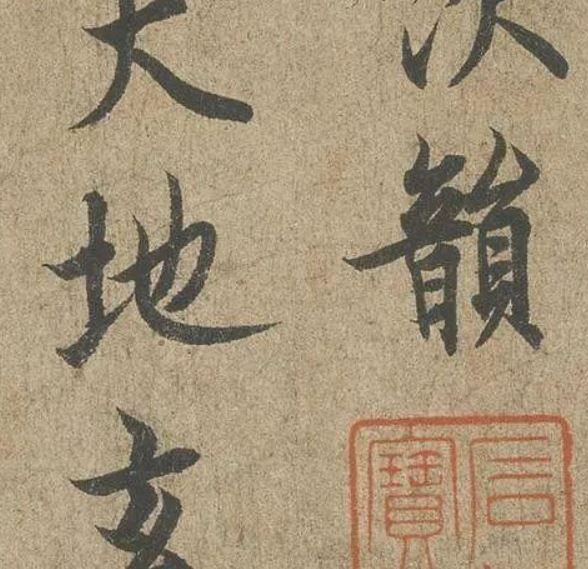 次韻
天地玄
寶